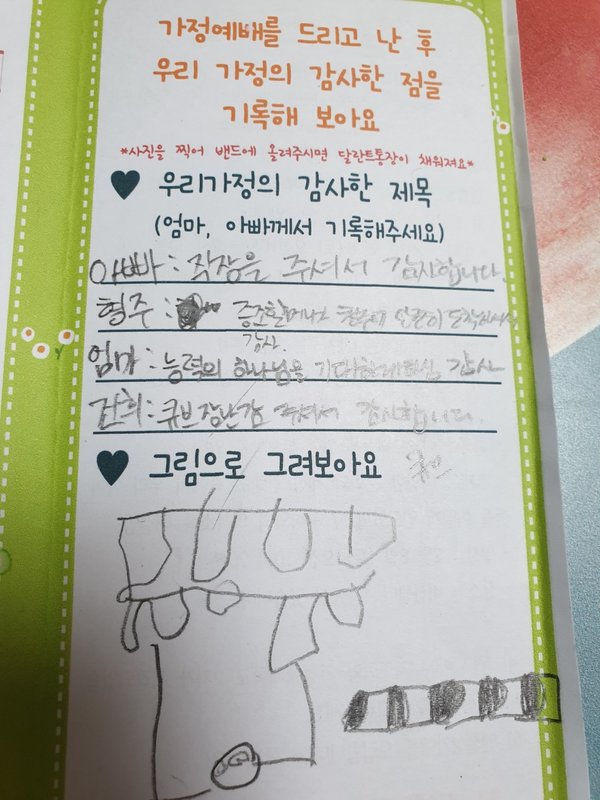 가정예배를 드리고 난 후
우리 가정의 감사한 점을
기록해 보아요
*사진을 찍어 밴드에 올려주시면 달란트통장이 채워져요*
우리가정의 감사한 제목
(엄마, 아빠께서 기록해주세요)
아빠: 직장을 주셔서 감사합니다.
형주: 증조할머니
감사
엄마: 능력의 하나님을 감사
건희: 큐브장난감 주셔서 감사합니다.
그림으로 그려보아요